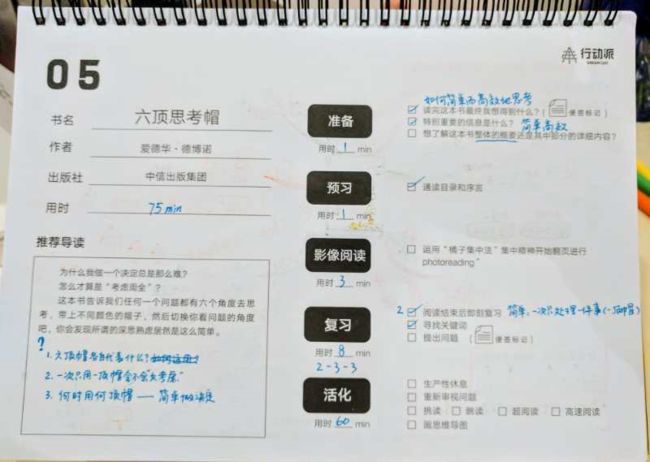 05
行动派
书名 六顶思考帽
作者 爱德华·德博诺
出版社 中信出版集团
用时 75min
推荐导读
为什么我做一个决定总是那么难?
怎么才算是“考虑周全”?
这本书告诉我们任何一个问题都有六个角度去思
考,带上不同颜色的帽子,然后切换你看问题的角度
吧,你会发现所谓的深思熟虑居然是这么简单。
?
1. 六顶帽各自代表什么?
2. 一次只用一顶帽会不会“太考虑”
3. 何时用何顶帽 —— 简单做决定
准备
用时 1 min
如何简单而高效地思考
读完这本书最终我想得到什么?(便签标记)
特别重要的信息是什么? 简单高效
想了解这本书整体的概要还是其中部分的详细内容?
预习
用时 1 min
通读目录和序言
影像阅读
用时 3 min
运用“橘子集中法”集中精神开始翻页进行
photoreading”
复习
用时 8 min
2-3-3
2. 阅读结束后即刻复习 简单:一次只处理一件事(一顶帽)
寻找关键词
提出问题 (便签标记)
活化
用时 60 min
生产性休息
重新审视问题
挑读 跳读 超阅读 高速阅读
画思维导图